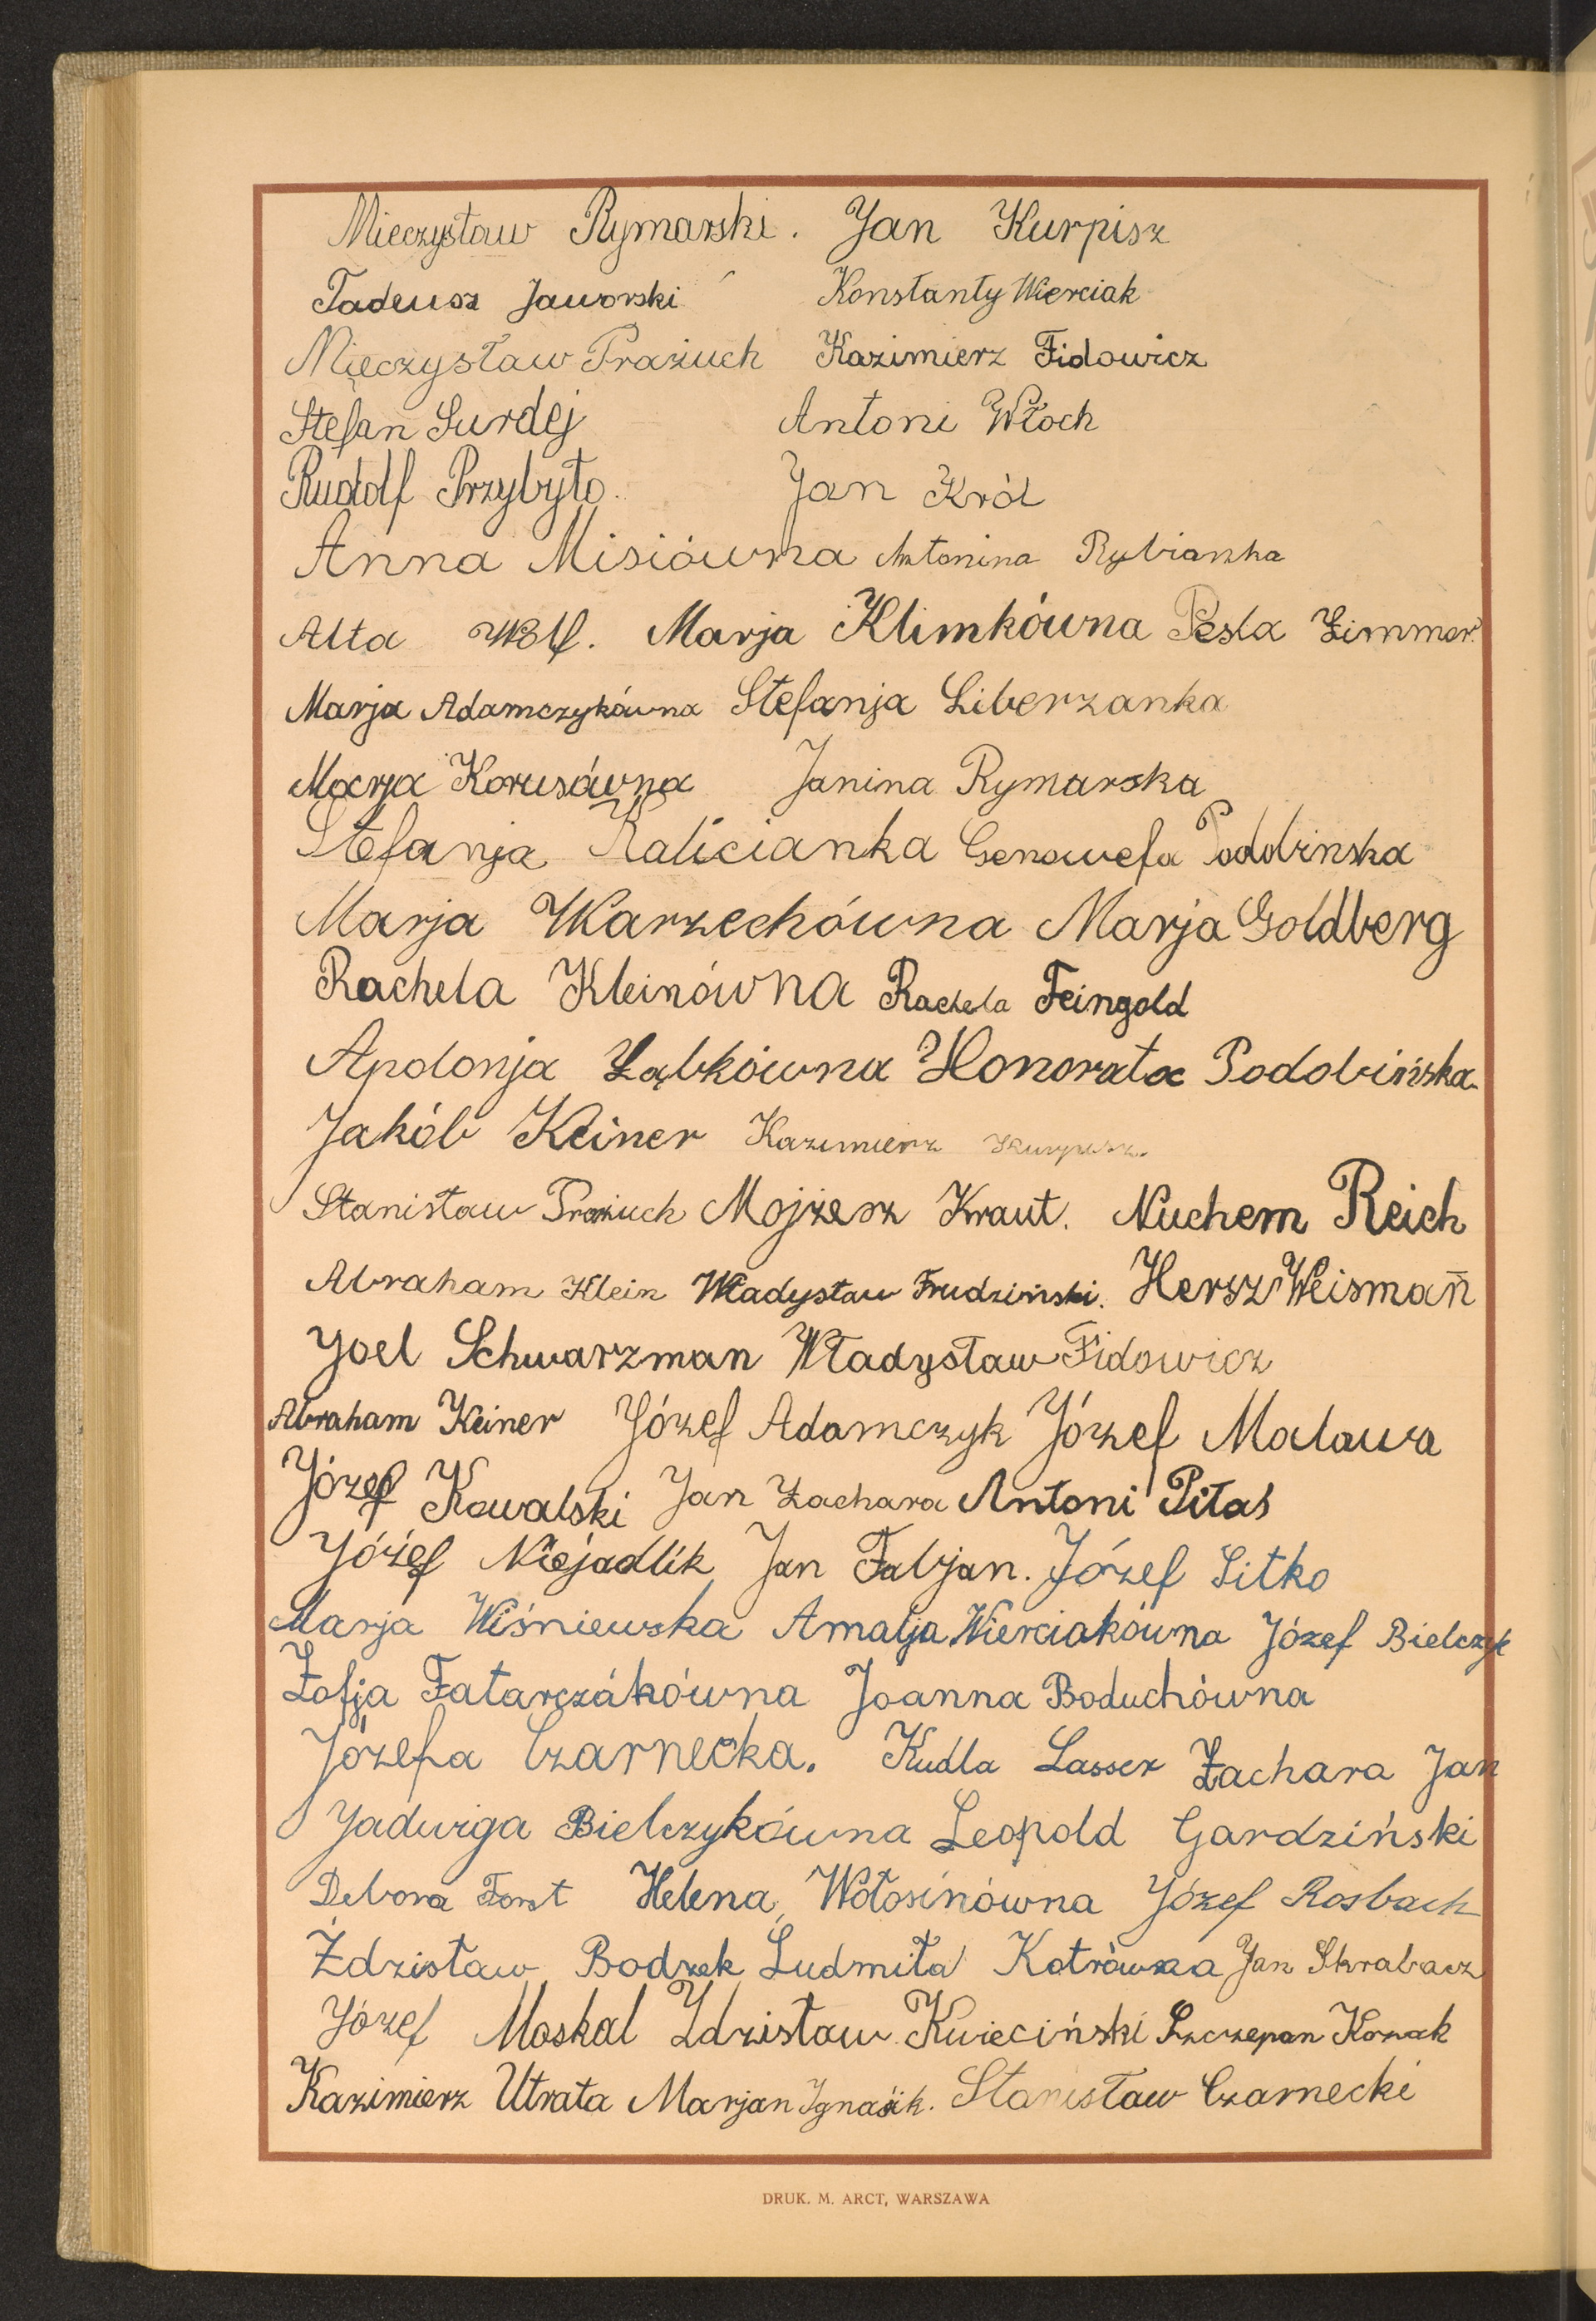 Mieczysław Rymarski. Jan Kurpisz
Tadeusz Jaworski Konstanty Wierciak
Mieczysław Prażuch Kazimierz Fidowicz
Stefan Surdej Antoni Włoch
Rudolf Przybyło. Jan Król
Anna Misiówna Antonina Rybianka
Alta Wolf. Marja Klimkówna Pesla Zimmer.
Marja Adamczykówna Stefanja Liberzanka
Marja Korusówna Janina Rymarska
Stefanja Kalicianka Genowefa
Marja Warzechówna Marja Goldberg
Rachela Kleinówna Rachela Feingold
Apolonja Ząbkówna Honorata Podobińska
Jakób Keiner Kazimierz Kurpisz.
Stanisław Prażuch Mojżesz Kraut. Nuchem Reich
Abraham Klein Władysław Frudziński. Hersz Weisman̄
Joel Schwarzman Władysław Fidowicz
Abraham Keiner Józef Adamczyk Józef Malawa
Józef Kowalski Jan Zachara Antoni Piłas
Józef Niejadlik Jan Fabjan. Józef Sitko
Marja Wiśniewska Amalja Wierciakówna Józef Bielczyk
Zofja Fatarczákówna Joanna Boduchówna
Józefa Czarnecka. Kudla Lasser Zachara Jan
Jadwiga Bielczykówna Leopold Gardziński
Debora Forst Helena Wołosinówna Józef Rosbach
Zdzisław Bodzek Ludmiła Kotrówna Jan Skrabacz
Józef Moskal Zdzisław Kwieciński Szczepan Kozak
Kazimierz Utrata Marjan Ignasik. Stanisław Czarnecki
DRUK. M. ARCT, WARSZAWA